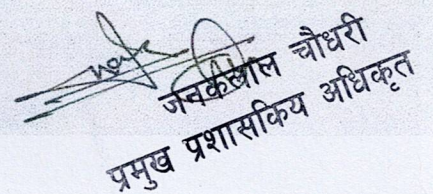 जनकलाल चौधरी
प्रमुख प्रशासकिय अधिकृत